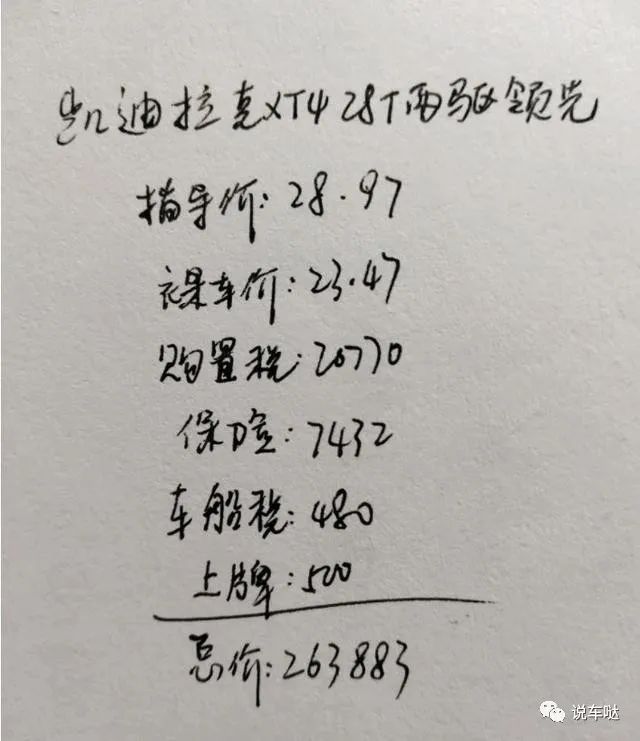 凯迪拉克XT4 28T两驱领先
指导价: 28.97
裸车价: 23.47
购置税: 20770
保险: 7432
车船税: 480
上牌: 500
总价: 263883
说车哒